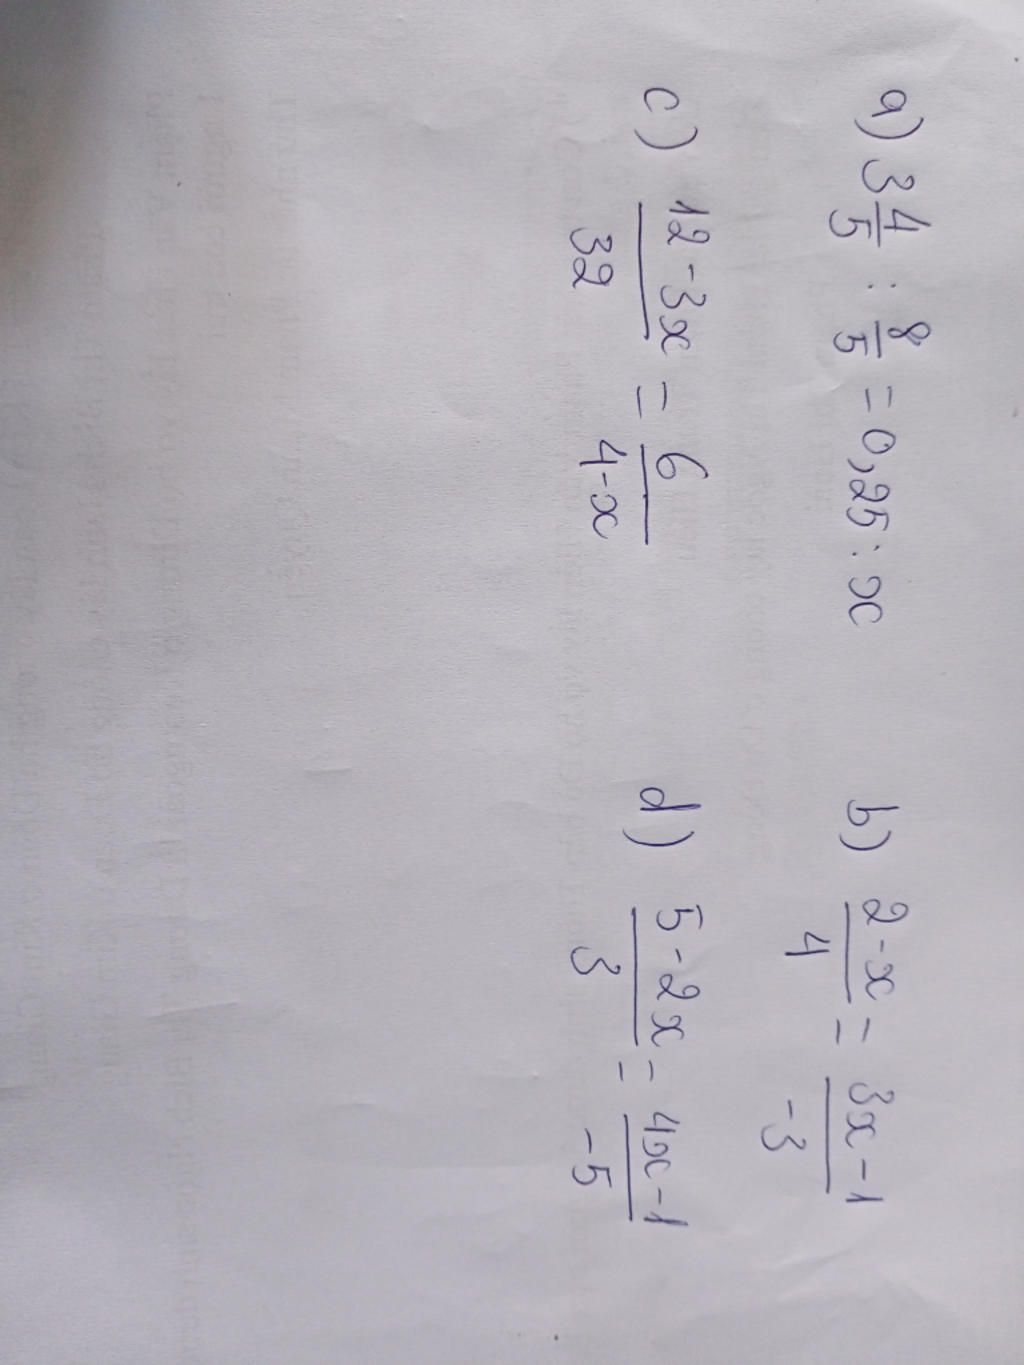 a) 3 4/5 : 8/5 = 0,25 : x
b) 2-x/4 = 3x-1/-3
c) 12-3x/32 = 6/4-x
d) 5-2x/3 = 4x-1/-5